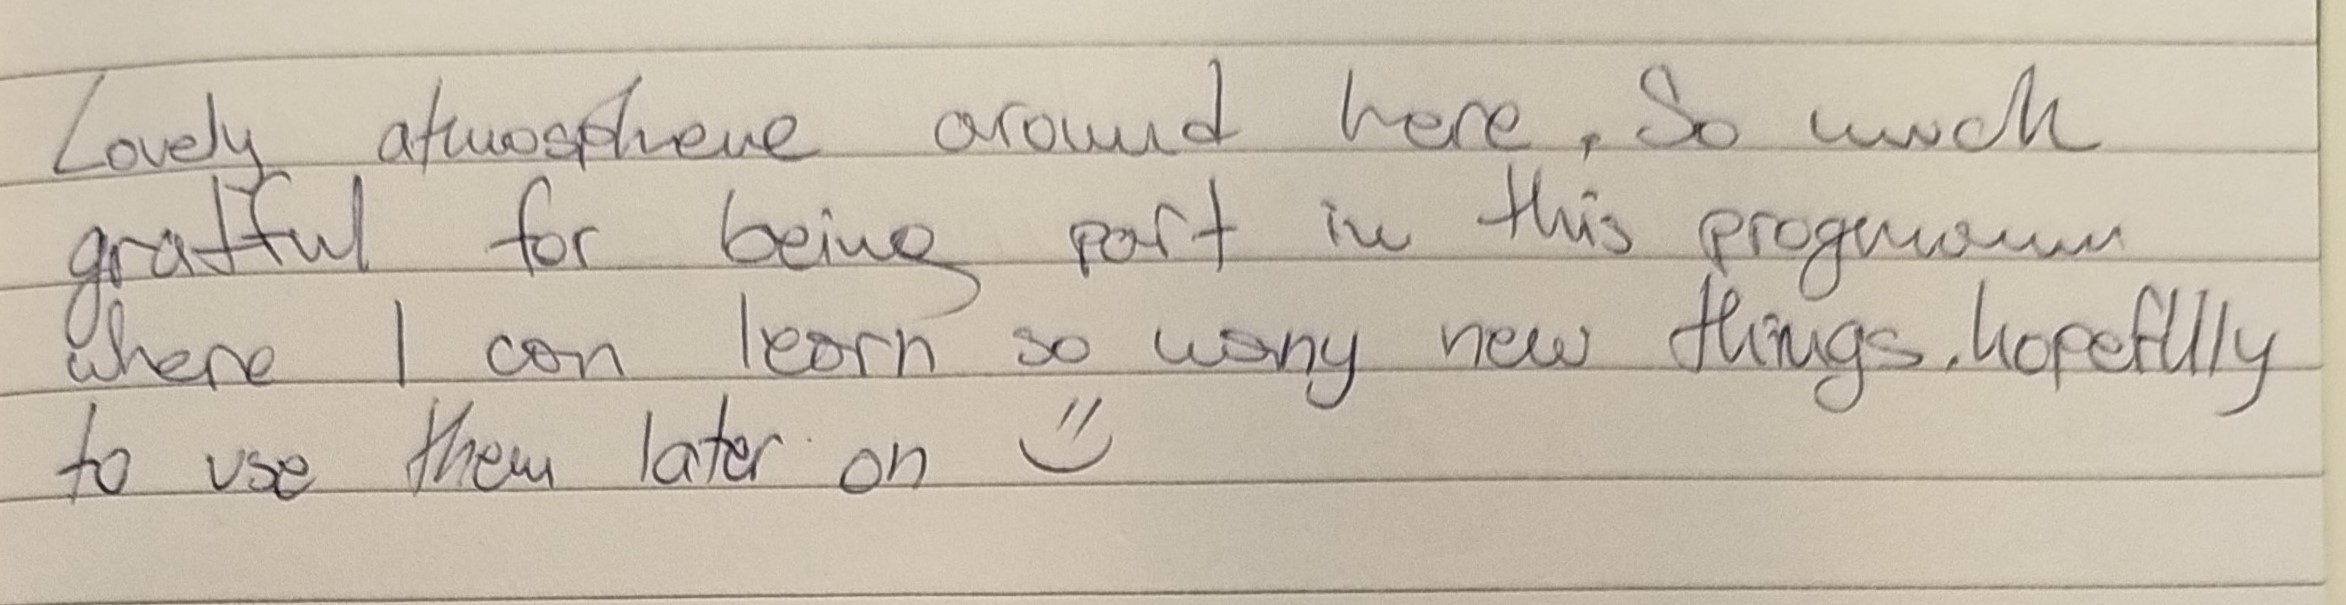 Lovely atmosphere around here, So much
gratful for being part in this programm
where I can learn so many new things. hopeflly
to use them later on